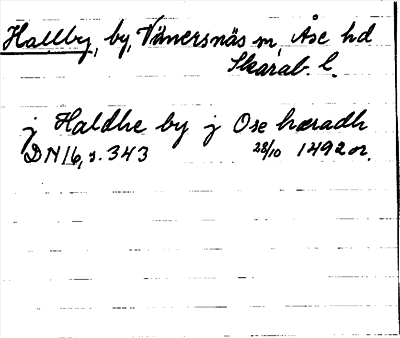 Hallby, by, Vänersnäs sn, Åse hd
Skarab. l.
j Haldhe by j Ose hæradh
DN 16, s. 343 28/10 1492 or.